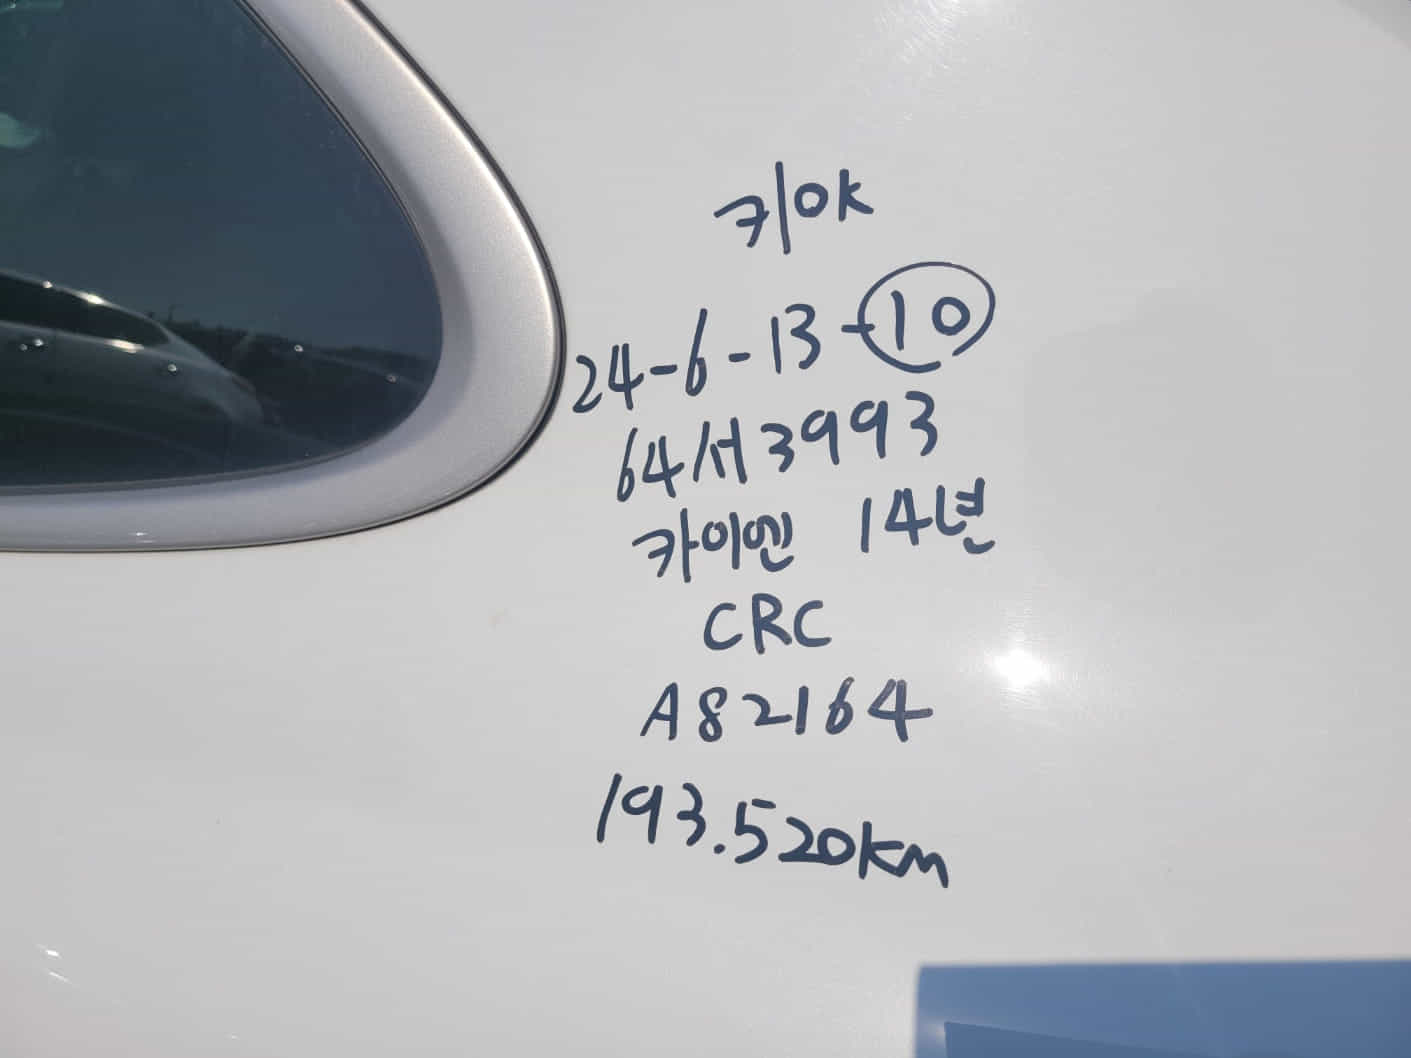 키OK
24-6-13-10
64서3993
카이엔 14년
CRC
A82164
193.520km